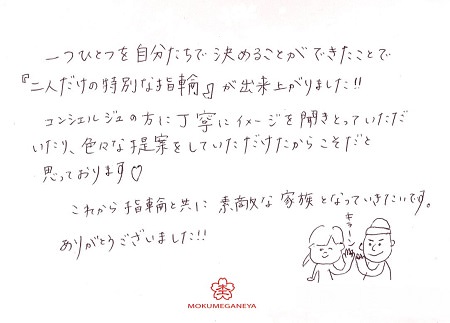 一つひとつを自分たちで決めることができたことで
『二人だけの特別な指輪』が出来上がりました!!
コンシェルジュの方に丁寧にイメージを聞きとっていただ
いたり、色々な提案をしていただけたからこそだと
思っております♡
これから指輪と共に素敵な家族となっていきたいです。
ありがとうございました!!
キラーン
MOKUMEGANEYA